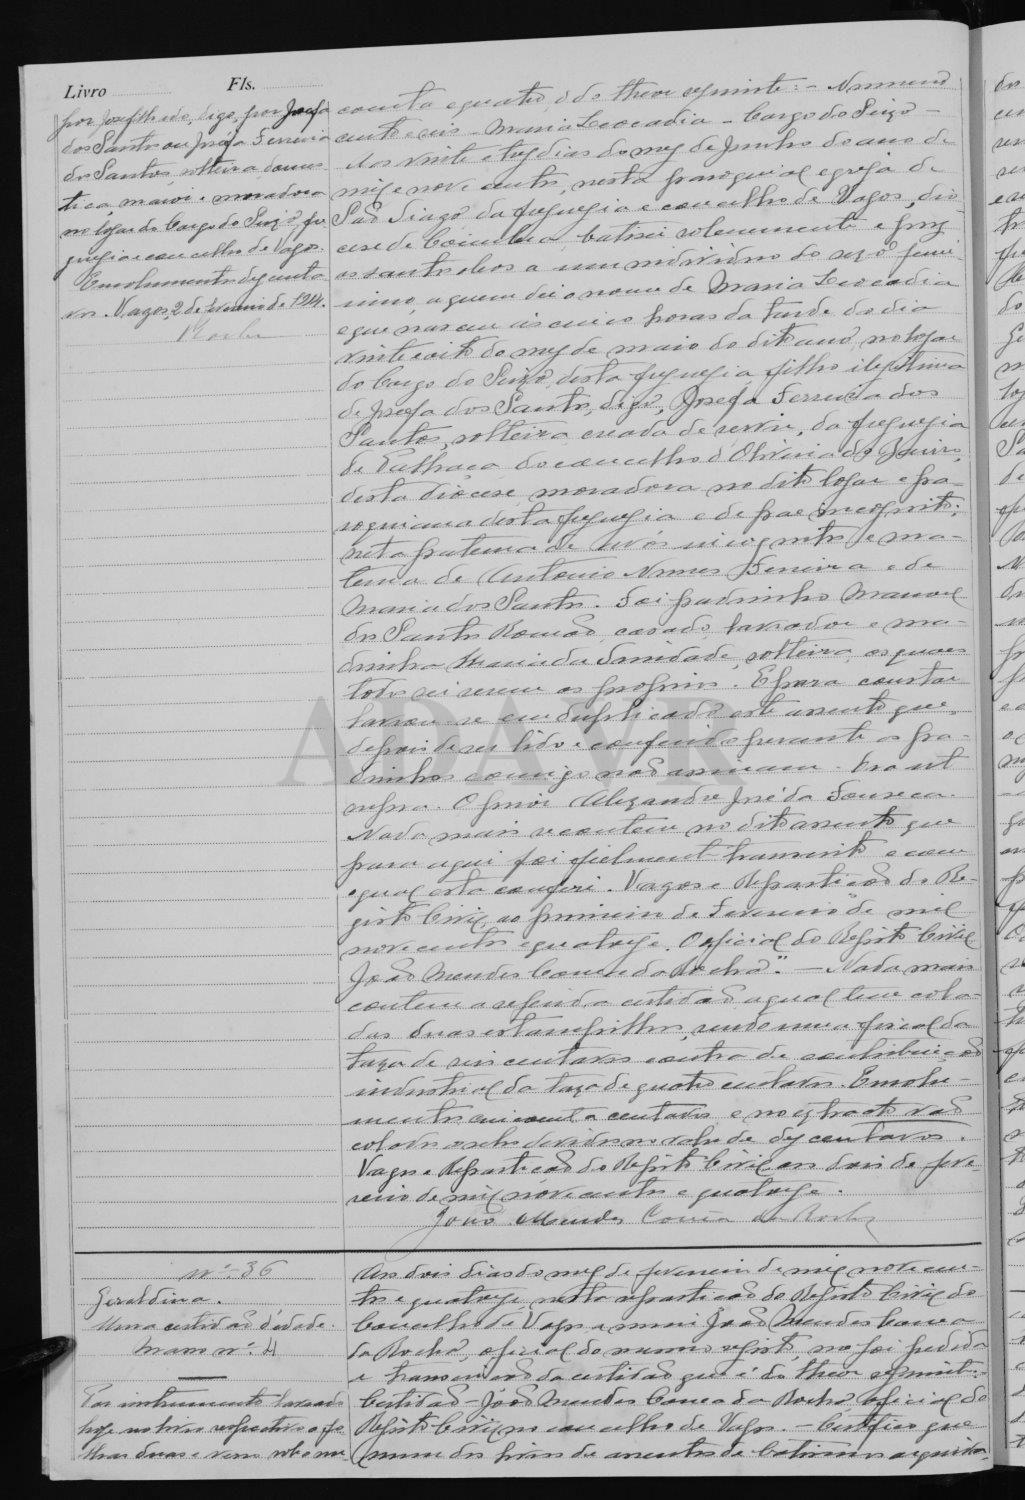 Livro Fls.
por Josefilhado, digo, por Josefa
dos Santos ou Josefa Ferreira
dos Santos, solteira, domes-
tica, maior e moradora
no logar do Corgo do Seixo, fre
guesia e concelho de Vagos.
Emolumentos dez centa
vos. Vagos, 2 de Fevereiro de 1914.
Rocha
coenta e quatro é do theor seguinte: - Numero
cento e seis - Maria Leocadia - Corgo do Seixo -
Aos vinte e tres dias do mez de Junho do anno de
mil e nove centos, nesta parochial egreja de
São Tiago da freguezia e concelho de Vagos, dio-
cese de Coimbra, batisei solenemente e puz
os santos oleos a um individuo do sexo femi-
nino, a quem dei o nome de Maria Leocadia
e que nasceu ás cinco horas da tarde do dia
vinte e oito do mez de maio do dito anno, no logar
do Corgo do Seixo, desta freguezia, filha ilegitima
de Josefa dos Santos, digo, Josefa Ferreira dos
Santos, solteira, creada de servir, da freguezia
de Palhaça do concelho d'Oliveira do Bairro,
desta diocese, moradora no dito logar e pa-
roquiana desta freguezia e de pae incognito;
neta paterna de avós incognitos e ma-
terna de Antonio Nunes Ferreira e de
Maria dos Santos. Foi padrinho Manoel
dos Santos Romão, casado, lavrador e ma-
drinha Maria da Trindade, solteira, os quaes
todos sei serem os proprios. E para constar
lavrou-se em duplicado este assento que,
depois de ser lido e conferido perante os pa-
drinhos comigo não assinam. Era ut
supra. O prior Alexandre José da Fonseca.
Nada mais se contem no dito assento que
para aqui foi fielmente transcrito e com
o qual esta conferi. Vagos e Repartição do Re-
gisto Civil, ao primeiro de Fevereiro de mil
nove centos e quatorze. O oficial do Registo Civil
João Mendes Correia da Rocha". - Nada mais
contem a referida certidão a qual tem cola-
das duas estampilhas, sendo uma fiscal da
taxa de seis centavos e outra de contribuição
industrial da taxa de quatro centavos. Emolu-
mentos cincoenta centavos e no extracto vão
colados os selos devidos no valor de dez centavos.
Vagos e Repartição do Registo Civil aos dois de feve-
reiro de mil nove centos e quatorze.
João Mendes Correia da Rocha
nº 36
Geraldina.
Uma certidão d'edade.
Maço nº 4
Por instrumento lavrado
hoje no livro respectivo a fo
lhas duas e verso
Aos dois dias do mez de fevereiro de mil nove cen-
tos e quatorze, nesta repartição do Registo Civil do
Concelho de Vagos, a mim João Mendes Correia
da Rocha, oficial do mesmo registo, me foi pedida
a transcrição da certidão que é do theor seguinte:
Certidão - João Mendes Correia da Rocha oficial do
Registo Civil no concelho de Vagos. - Certifico que
num dos livros de assentos de batismos arquiva-